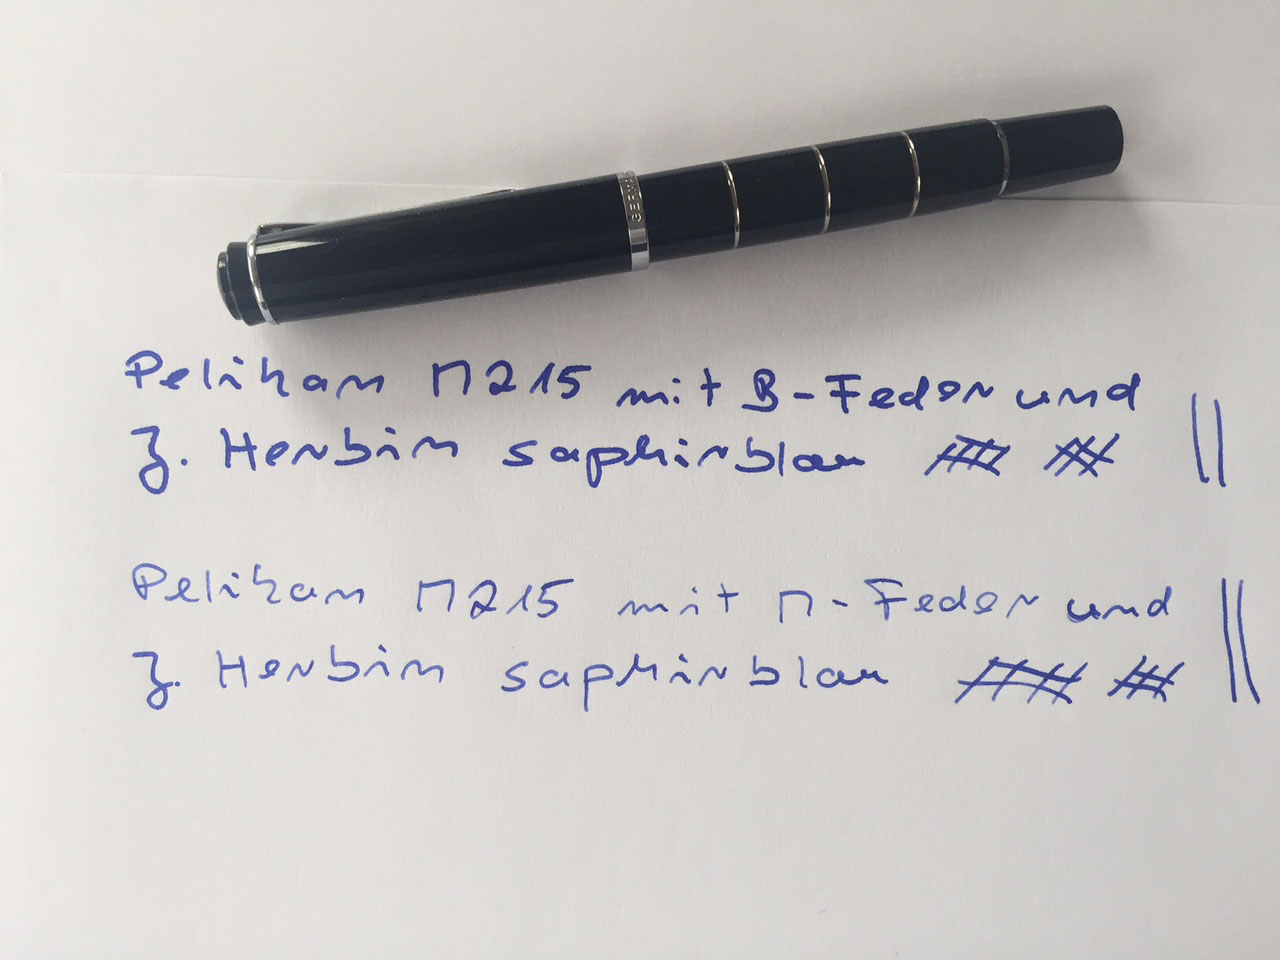 GERMA
Pelikan M215 mit B-Feder und
J. Herbin saphirblau
Pelikan M215 mit M-Feder und
J. Herbin saphirblau